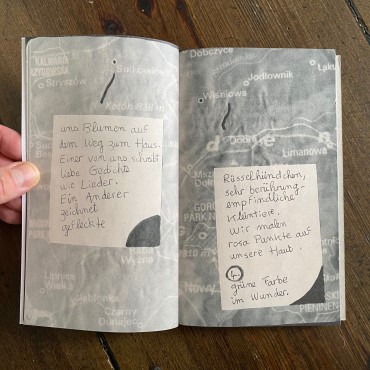 KALWARIA
Stryszów
Koton 830 m
uns Blumen auf
dem Weg zum Haus.
Einer von uns schreibt
liebe Gedichte
wie Lieder.
Ein Anderer
zeichnet
gefleckte
Lipnica
Wielka
Jabłonka
Czarny
Dunajec
Dobczyce
Jodłownik
Wiśniowa
Limanowa
Rüsselhündchen,
sehr berührung-
empfindliche
Kleintiere.
Wir malen
rosa Punkte auf
unsere Haut.
grüne Farbe
im Wunder.
Nowy
PIENINY